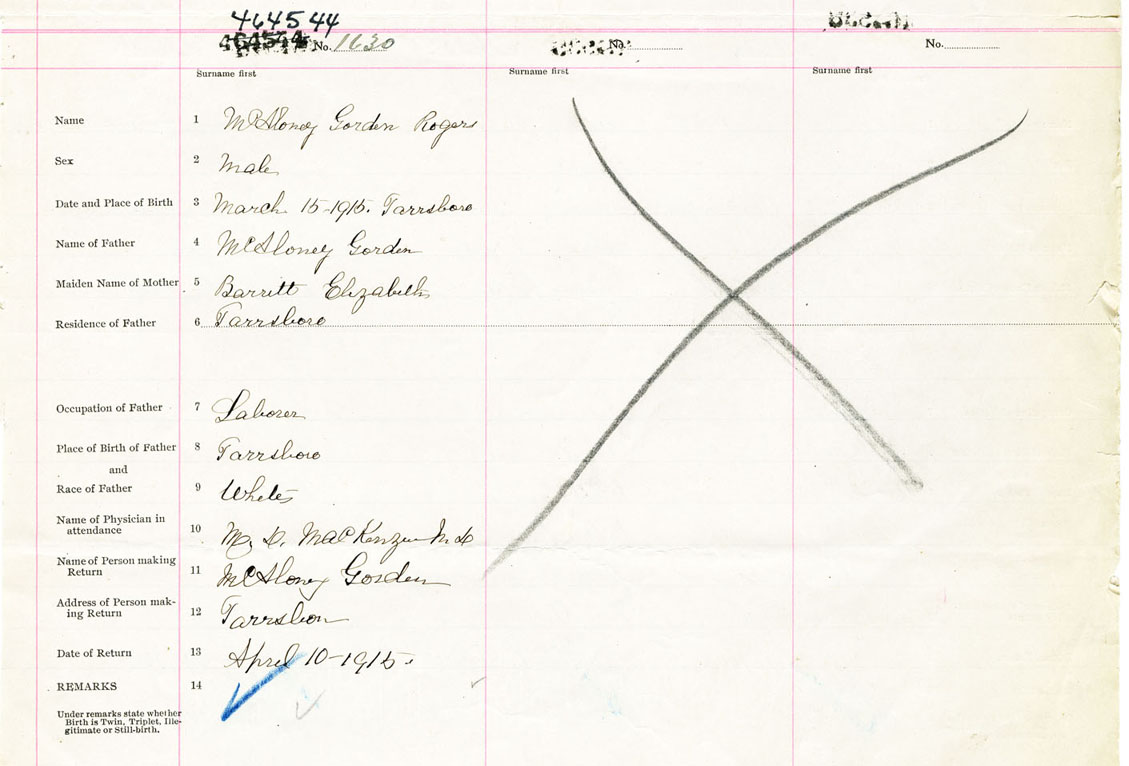 464544
464544 No. 1630 No. No.
Surname first Surname first Surname first
Name 1 McAloney Gorden Rogers
Sex 2 Male
Date and Place of Birth 3 March 15-1915. Tarrsboro
Name of Father 4 McAloney Gorden
Maiden Name of Mother 5 Barrett Elizabeth
Residence of Father 6 Tarrsboro
Occupation of Father 7 Laborer
Place of Birth of Father 8 Tarrsboro
and
Race of Father 9 White
Name of Physician in
attendance 10 M. D. MacKenzie M.D
Name of Person making
Return 11 McAloney Gorden
Address of Person mak-
ing Return 12 Tarrsboro
Date of Return 13 April 10-1915.
REMARKS 14
Under remarks state whether
Birth is Twin, Triplet, Ille-
gitimate or Still-birth.